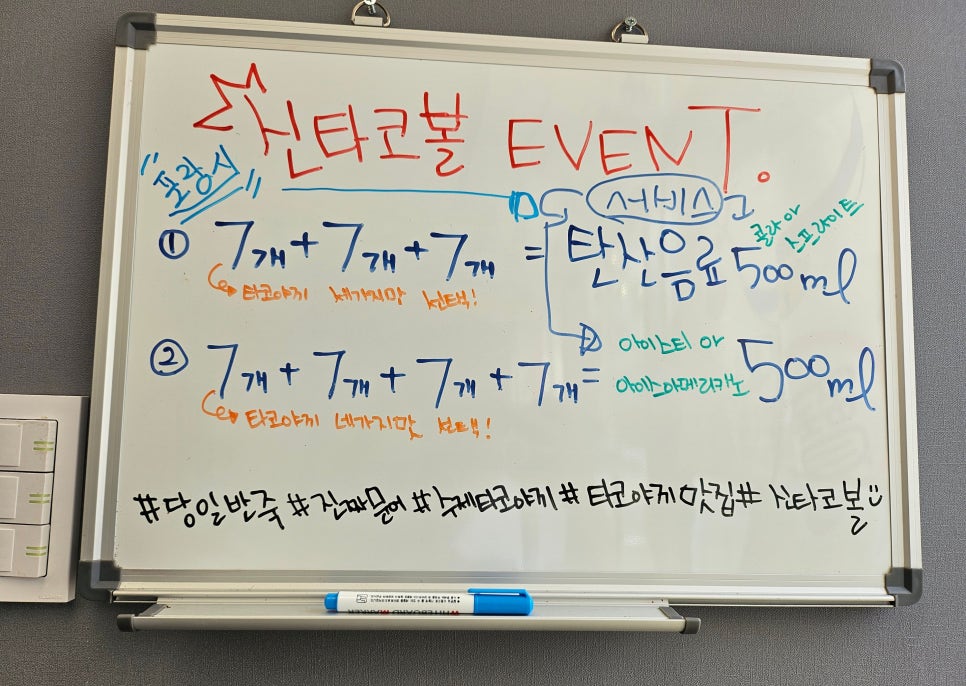 신타코볼 EVENT.
"포장시"
서비스
① 7개+7개+7개 = 탄산음료 500ml
콜라 아
스프라이트
타코야끼 세가지맛 선택!
② 7개+7개+7개+7개= 아이스티 아 500ml
아이스아메리카노
타코야끼 네가지맛 선택!
#당일반죽 #진짜문어 #수제타코야끼 # 타코야끼 맛집# 신타코볼
WHITEBOARD MARKER